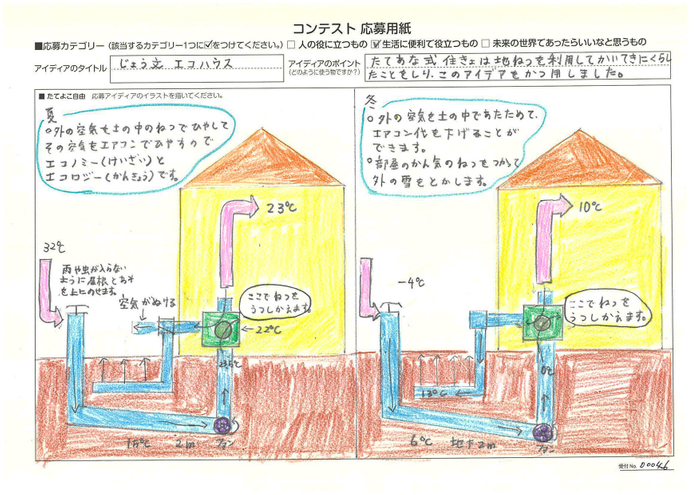 コンテスト 応募用紙
■応募カテゴリー（該当するカテゴリー1つに☑をつけてください。）□ 人の役に立つもの ☑ 生活に便利で役立つもの □ 未来の世界であったらいいなと思うもの
アイディアのタイトル じょう文 エコハウス
アイディアのポイント
（どのように使う物ですか？）
たてあな式 住きょは地ねつを利用してかいてきにくらし
たことをしり、このアイデアをかつ用しました。
■たてよこ自由 応募アイディアのイラストを描いてください。
夏
○外の空気を土の中のねつでひやして
その空気をエアコンでひやすので
エコノミー(けいざい)と
エコロジー(かんきょう)です。
23℃
32℃
雨や虫が入らない
ように屋根とあみ
を上にのせます。
空気がぬける
ここでねつを
うつしかえます。
22℃
15℃
2m
ファン
冬
○外の空気を土の中であたためて、
エアコン代を下げることが
できます。
○部屋のかん気のねつをつかって
外の雪をとかします。
10℃
-4℃
ここでねつを
うつしかえます。
0℃
13℃
6℃
地下2m
ファン
受付No. 00046